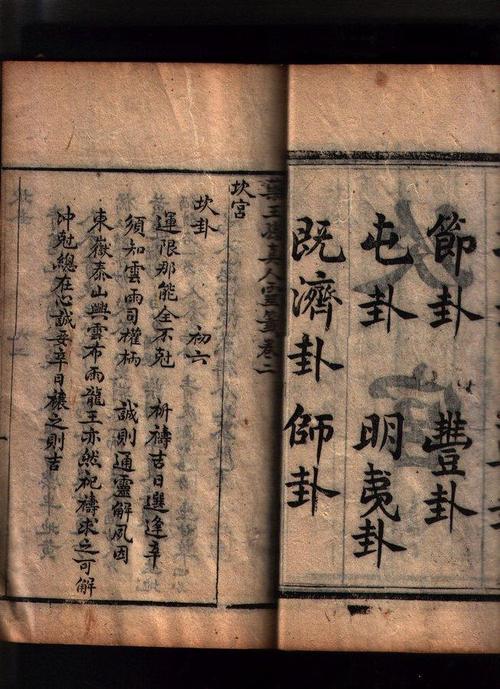 節卦 豐卦
屯卦 明夷卦
既濟卦 師卦
真人靈籤卷二
坎宮
坎卦 初六
運限那能全不尅 祈禱吉日選逢辛
須知雲雨司權柄 誠則通靈解夙因
東嶽泰山興雲布雨龍王亦然祀禱求之可解
沖尅總在心誠妥辛日禳之則吉